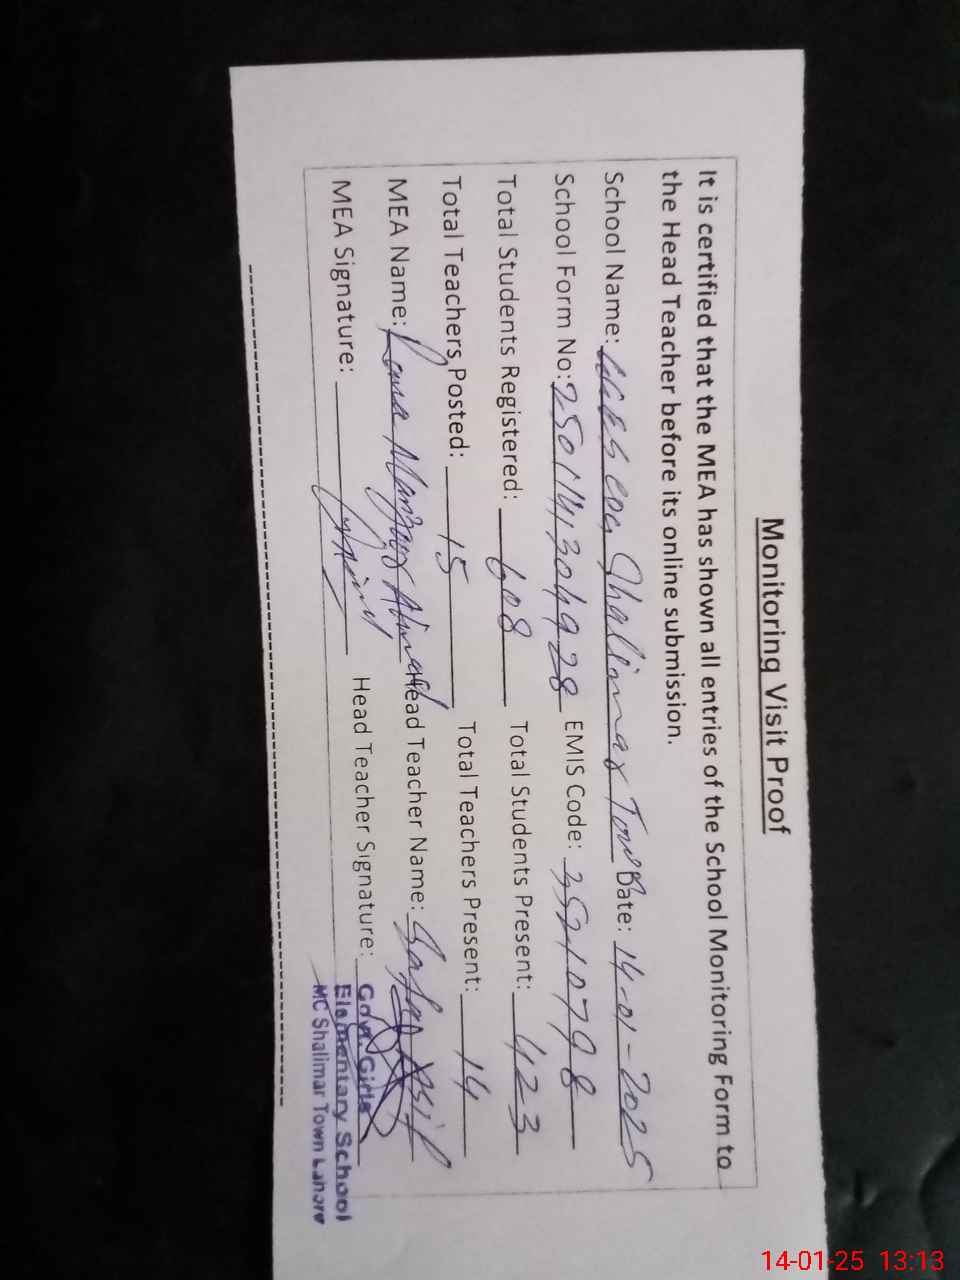 Monitoring Visit Proof
It is certified that the MEA has shown all entries of the School Monitoring Form to
the Head Teacher before its online submission.
School Name: Shalimar Town Date: 14-01-2025
School Form No: EMIS Code: 35210798
Total Students Registered: 608 Total Students Present: 423
Total Teachers Posted: 15 Total Teachers Present: 14
MEA Name: Rana Manzoor Ahmad Head Teacher Name:
MEA Signature: Head Teacher Signature:
Govt. Girls
Elementary School
MC Shalimar Town Lahore
14-01-25 13:13